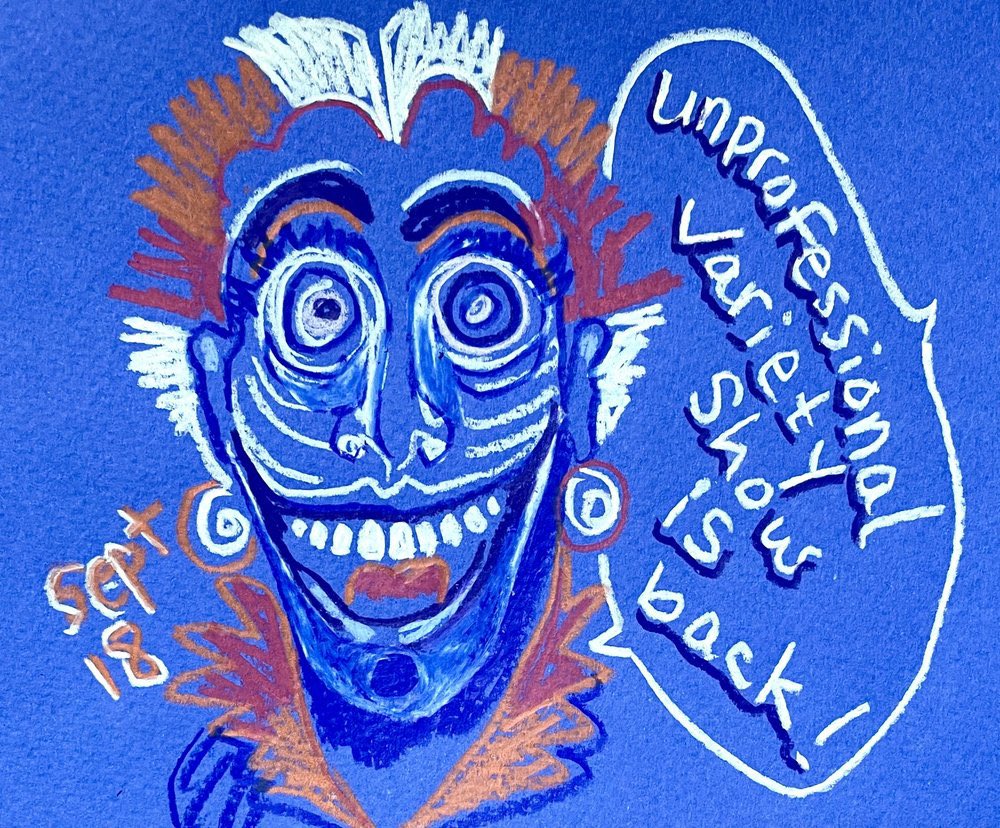 unprofessional
variety
show
is
back!
sept
18